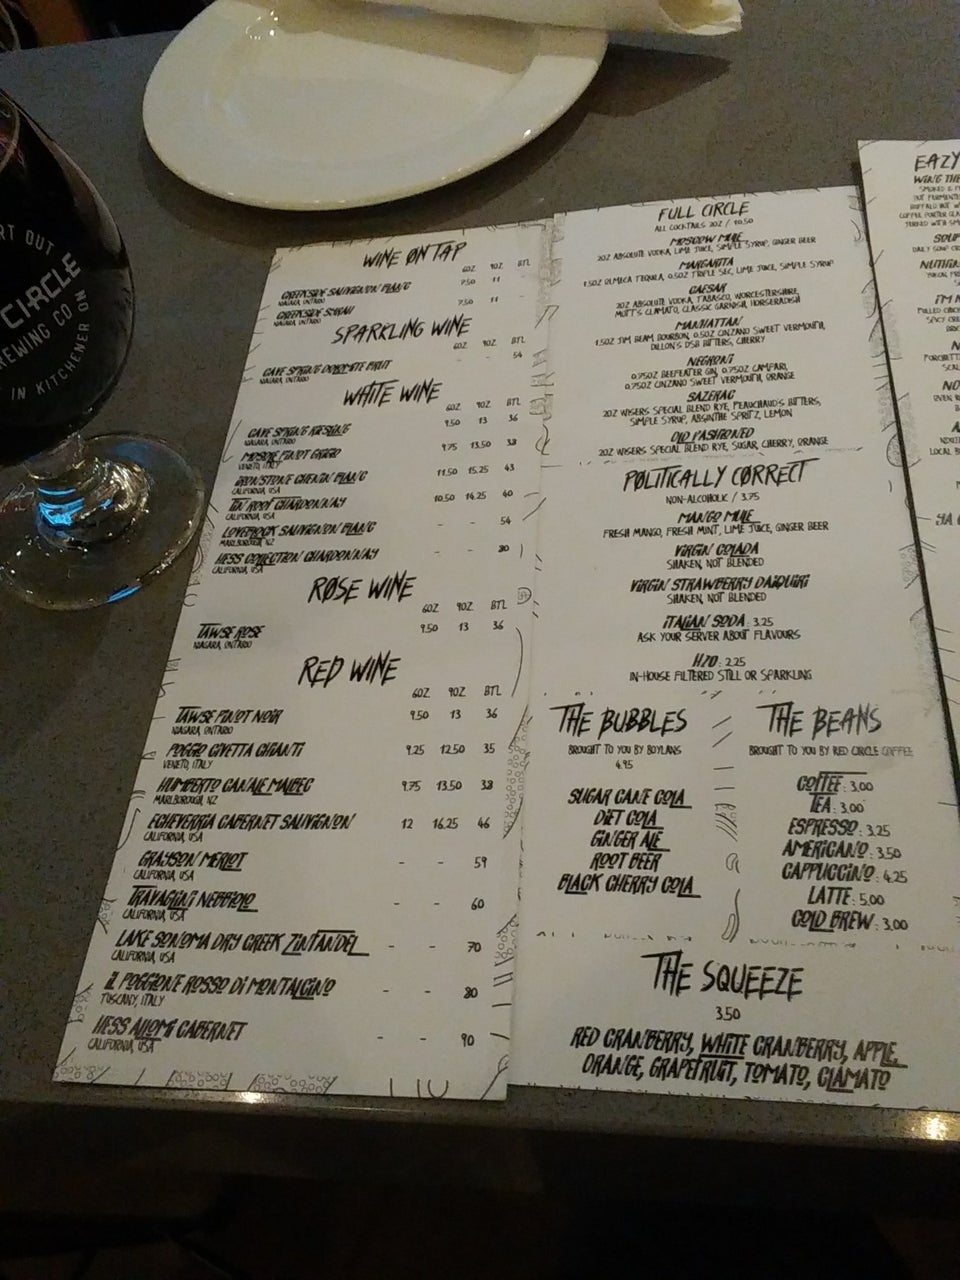 RT OUT
CIRCLE
REWING CO
IN KITCHENER ON
WINE ØN TAP
6OZ 9OZ BTL
CREEKSIDE SAUVIGNON BLANC 7.50 11 -
NIAGARA, ONTARIO
CREEKSIDE 7.50 11 -
NIAGARA, ONTARIO
SPARKLING WINE
6OZ 9OZ BTL
CAVE SPRING DOLOMITE BRUT - - 54
NIAGARA, ONTARIO
WHITE WINE
6OZ 9OZ BTL
CAVE SPRING RIESLING 9.50 13 36
NIAGARA, ONTARIO
PINOT GRIGIO 9.75 13.50 38
VENETO, ITALY
IRONSTONE CHENIN BLANC 11.50 15.25 43
CALIFORNIA, USA
TIN ROOF CHARDONNAY 10.50 14.25 40
CALIFORNIA, USA
LOVEBLOCK SAUVIGNON BLANC - - 54
MARLBOROUGH, NZ
HESS COLLECTION CHARDONNAY - - 80
CALIFORNIA, USA
RØSE WINE
6OZ 9OZ BTL
TAWSE ROSE 9.50 13 36
NIAGARA, ONTARIO
RED WINE
6OZ 9OZ BTL
TAWSE PINOT NOIR 9.50 13 36
NIAGARA, ONTARIO
POGGO CIVETTA CHIANTI 9.25 12.50 35
VENETO, ITALY
HUMBERTO CANALE MALBEC 9.75 13.50 38
MARLBOROUGH, NZ
ECHEVERRIA CABERNET SAUVIGNON 12 16.25 46
CALIFORNIA, USA
GRAYSON MERLOT - - 59
CALIFORNIA, USA
TRAVAGLINI NEBBIOLO - - 60
CALIFORNIA, USA
LAKE SONOMA DRY CREEK ZINFANDEL - - 70
CALIFORNIA, USA
IL POGGIONE ROSSO DI MONTALCINO - - 80
TUSCANY, ITALY
HESS ALLOMI CABERNET - - 90
CALIFORNIA, USA
FULL CIRCLE
ALL COCKTAILS 2OZ / 10.50
MOSCOW MULE
2OZ ABSOLUTE VODKA, LIME JUICE, SIMPLE SYRUP, GINGER BEER
MARGARITA
1.5OZ OLMECA TEQUILA, 0.5OZ TRIPLE SEC, LIME JUICE, SIMPLE SYRUP
CAESAR
2OZ ABSOLUTE VODKA, TABASCO, WORCESTERSHIRE,
MOTT'S CLAMATO, CLASSIC GARNISH, HORSERADISH
MANHATTAN
1.5OZ JIM BEAM BOURBON, 0.5OZ CINZANO SWEET VERMOUTH,
DILLON'S DSB BITTERS, CHERRY
NEGRONI
0.75OZ BEEFEATER GIN, 0.75OZ CAMPARI,
0.75OZ CINZANO SWEET VERMOUTH, ORANGE
SAZERAC
2OZ WISERS SPECIAL BLEND RYE, PEAUCHAUD'S BITTERS,
SIMPLE SYRUP, ABSINTHE SPRITZ, LEMON
OLD FASHIONED
2OZ WISERS SPECIAL BLEND RYE, SUGAR, CHERRY, ORANGE
PØLITICALLY CØRRECT
NON-ALCOHOLIC / 3.75
MANGO MULE
FRESH MANGO, FRESH MINT, LIME JUICE, GINGER BEER
VIRGIN COLADA
SHAKEN, NOT BLENDED
VIRGIN STRAWBERRY DAIQUIRI
SHAKEN, NOT BLENDED
ITALIAN SODA : 3.25
ASK YOUR SERVER ABOUT FLAVOURS
H2O : 2.25
IN-HOUSE FILTERED STILL OR SPARKLING
THE BUBBLES
BROUGHT TO YOU BY BOYLANS
4.95
SUGAR CANE COLA
DIET COLA
GINGER ALE
ROOT BEER
BLACK CHERRY COLA
THE BEANS
BROUGHT TO YOU BY RED CIRCLE COFFEE
COFFEE : 3.00
TEA : 3.00
ESPRESSO : 3.25
AMERICANO : 3.50
CAPPUCCINO : 4.25
LATTE : 5.00
COLD BREW : 3.00
THE SQUEEZE
3.50
RED CRANBERRY, WHITE CRANBERRY, APPLE,
ORANGE, GRAPEFRUIT, TOMATO, CLAMATO
EAZY
WING THE
SMOKED &
BUFFALO HOT
COPPER PORTER
SOUP
DAILY SOUP
NUTHIN
I'M
PULLED CHICK
SPICY